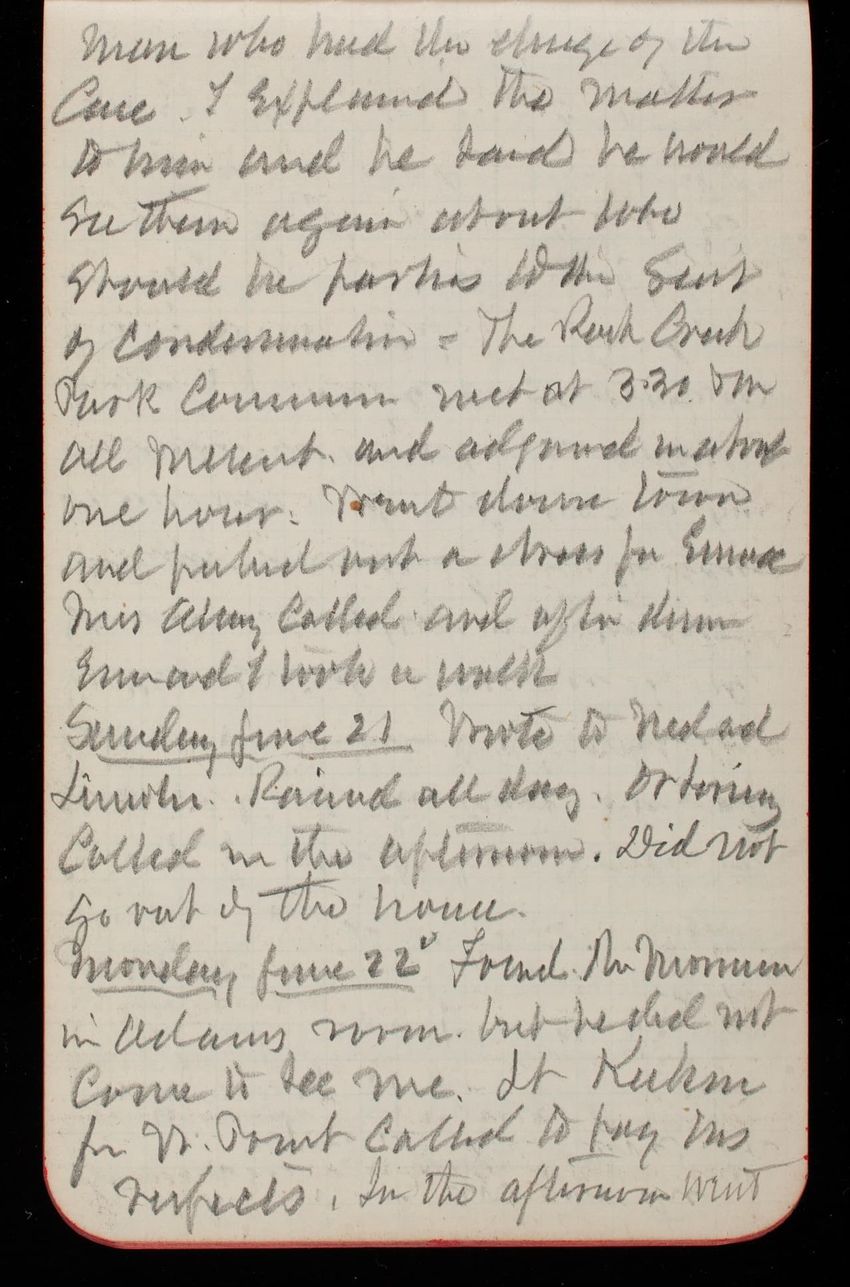 man who had the charge of the
Case. I Explained the matter
to him and he said he would
see them again about who
should be parties to the Suit
of Condemnation = The Rock Creek
Park Commission met at 3.30 Pm
all present. and adjourned in about
one hour. Went down town
and picked out a dress for Emma
Mrs Abbey Called and after dinner
Emma and I took a walk
Sunday June 21 Wrote to Ned and
Lincoln. Rained all day. Dr
Called in the afternoon. Did not
go out of the house.
Monday June 22" Found
in Adams room. but he did not
Come to see me. Lt
for W. Point Called to pay his
respects. In the afternoon went